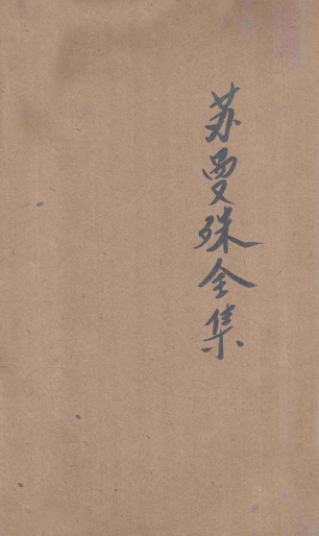 苏曼殊全集